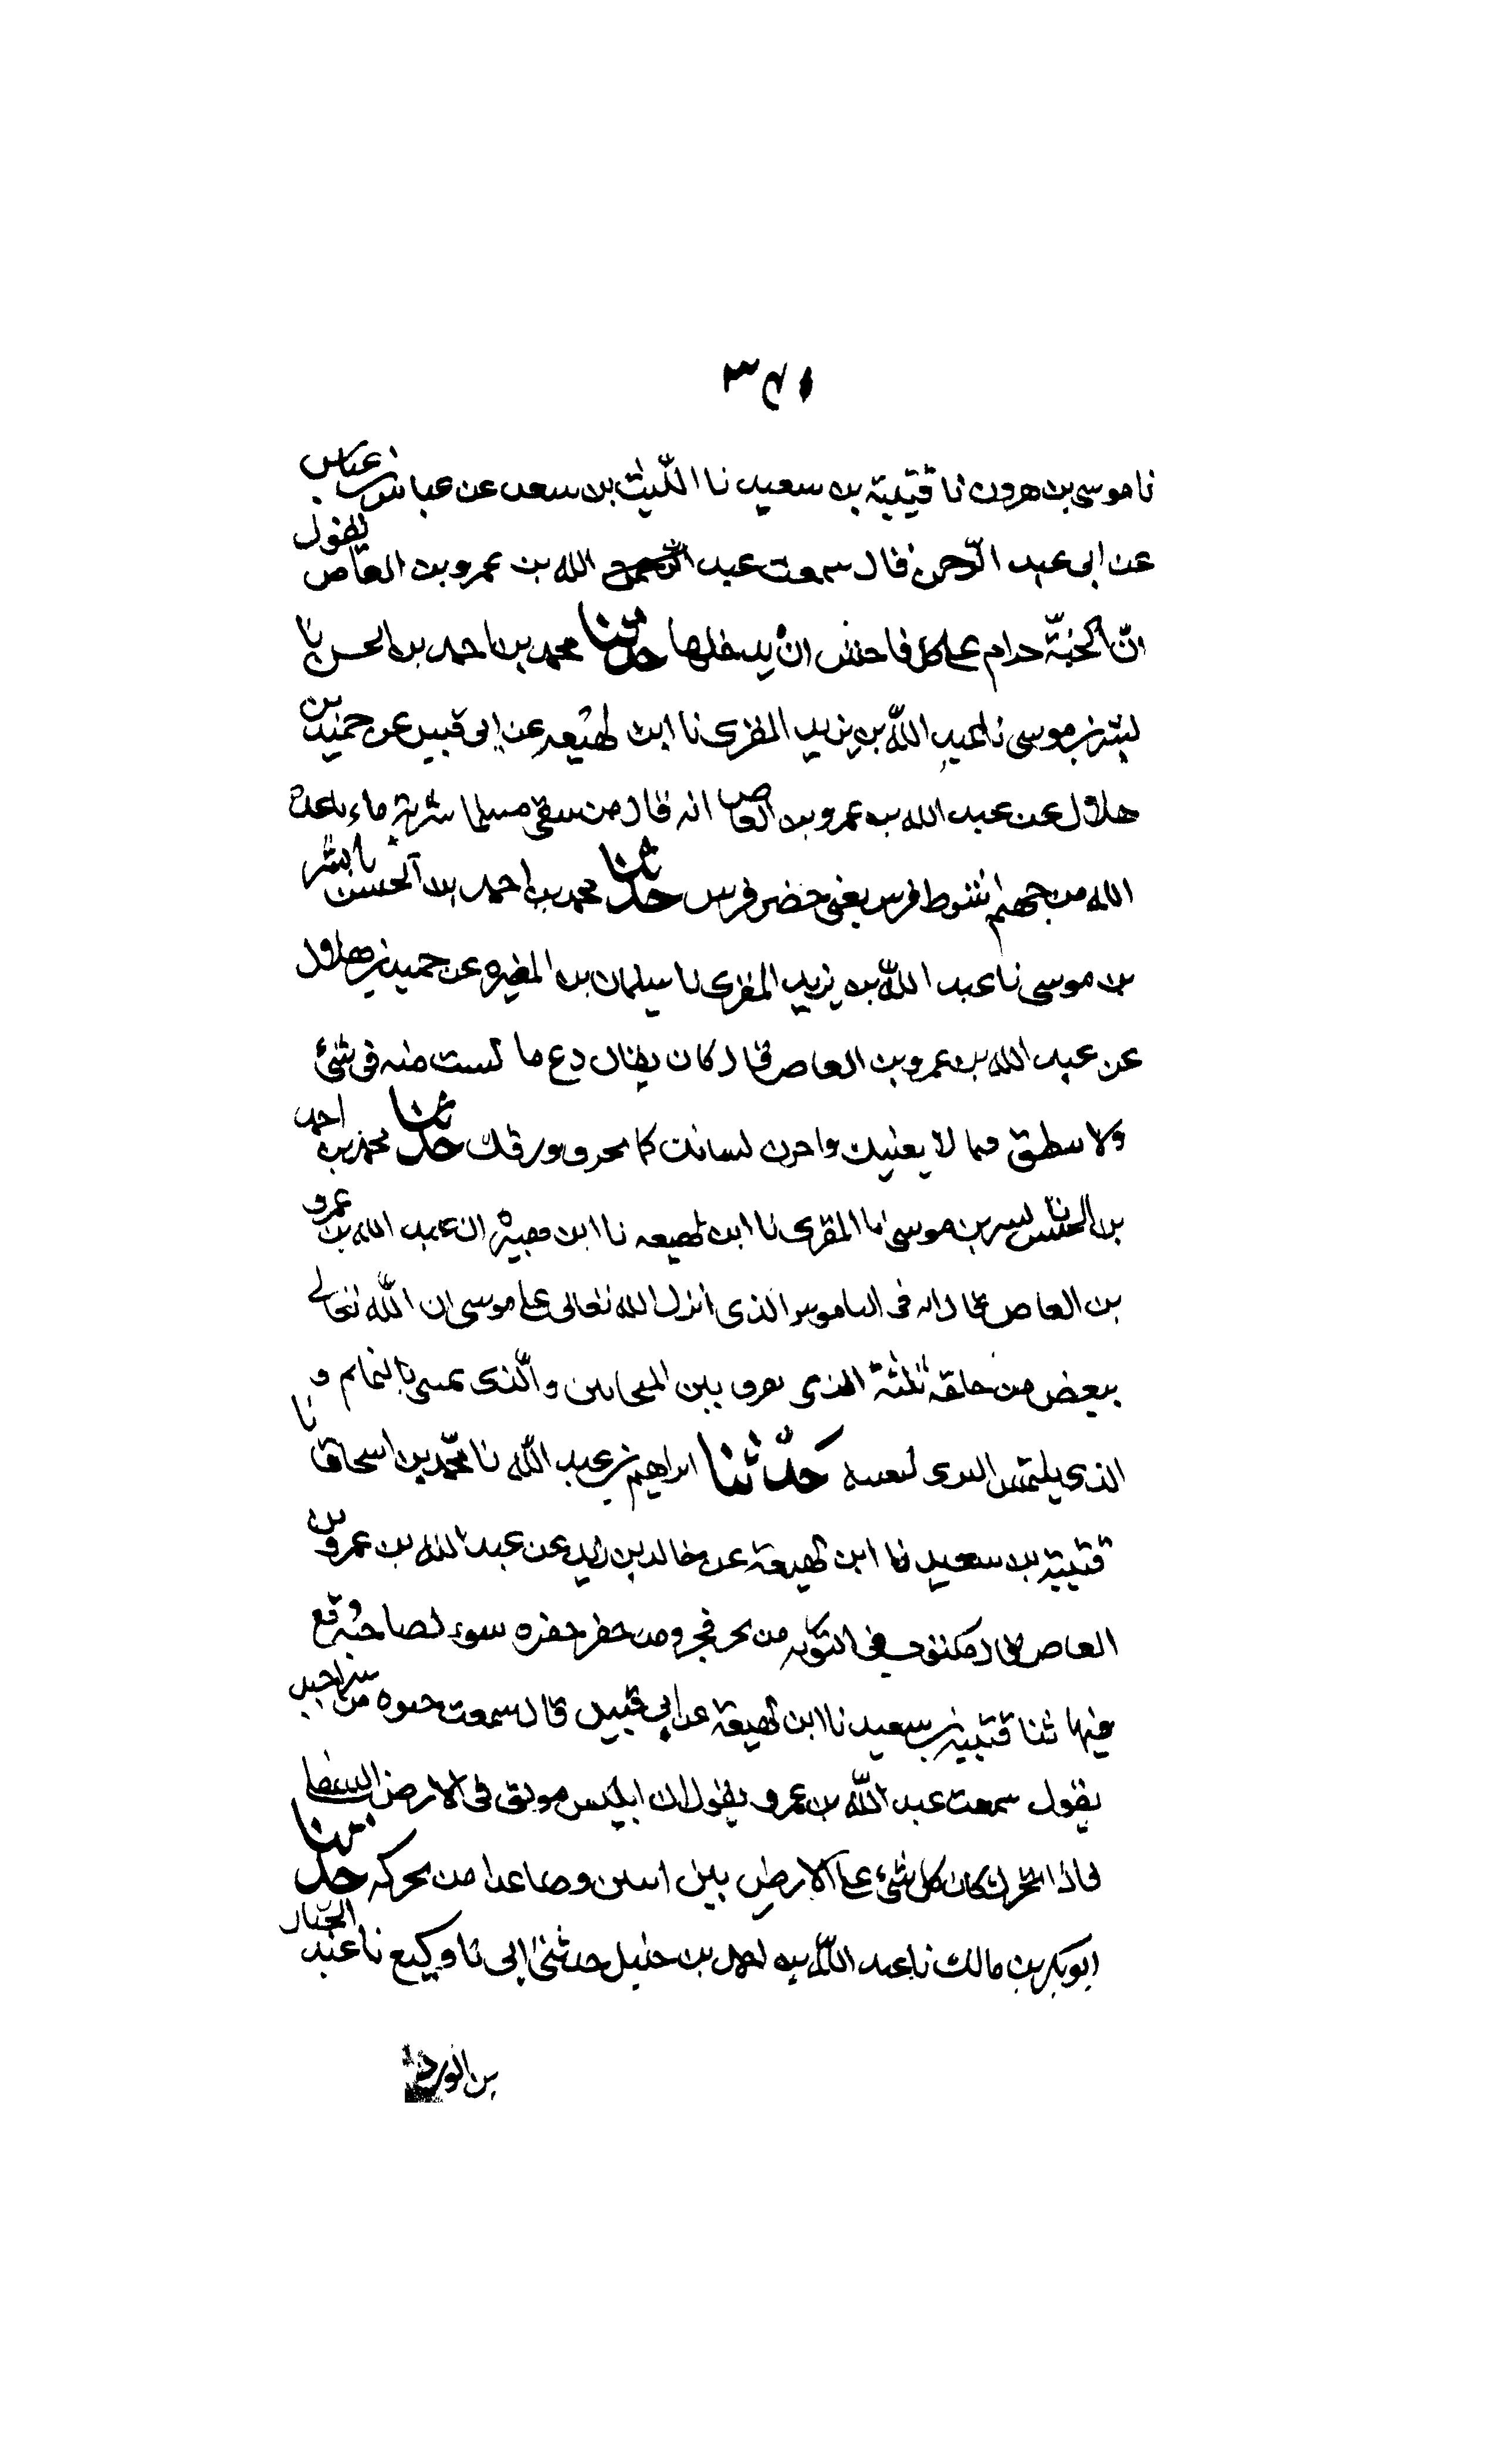 ٣٤١
نا موسى بن هرون نا قتيبة بن سعيد نا اللّيث بن سعد عن عباس بن عباس
عن ابى عبد الرّحمن قال سمعت عبد الله بن عمرو بن العاص يقول
انّ الجنّة حرام على كل فاحش ان يدخلها حدثنا محمد بن احمد بن الحسن نا
بشر بن موسى نا عبد اللّه بن يزيد المقرى نا ابن لهيعه عن ابى قبيس عن حميد بن
هلال عن عبد الله بن عمرو بن العاص انه قال من سقى مسلما شربة ماء باعده
الله من جهنم شوط فرس يعنى حضر فرس حدثنا محمد بن احمد بن الحسن نا بشر
بن موسى نا عبد اللّه بن يزيد المقرى نا سليمان بن المغيره عن حميد بن هلال
عن عبد الله بن عمرو بن العاص قال كان يقال دع ما لست منه فى شئ
ولا سطق فىما لا يعنيك واحرن لسانك كما تحرن ورقك حدثنا محمد بن احمد
بن الحسن نا بشر بن موسى نا المقرى نا ابن لهيعه نا ابن هبيره ان عبد الله بن عمرو
بن العاص قال انه فى الناموس الذى انزل الله تعالى على موسى ان اللّه تعالى
يبغض من خلقه ثلثة الذى يفرق بين المتحابين والّذى يمشى بالنمايم و
الذى يلتمس البرى لىعىىه حَدّثنا ابراهيم بن عبد اللّه نا محمّد بن اسحاق نا
قتيبة بن سعيد نا ابن لهيعة عن خالد بن يزيد عن عبد الله بن عمرو بن
العاص قال مكتوب فى التوّراه من تجر فجر ومن حفر حفره سوء لصاحبه وقع
فيها ثنا قتيبة بن سعيد نا ابن لهيعة عن ابى قبيل قال سمعت حىوه من شراحيل
يقول سمعت عبد اللّه بن عمرو يقول ان ابليس موثق فى الارض السفلى
فاذا تحرّك كان كل شئ على الارض بين اىىىن وصاعدا من تحركه حدثنا
ابو بكر بن مالك نا عبد اللّه بن احمد بن حنبل حدثنى ابى نا وكيع نا عبد الجبّار
بن الورد